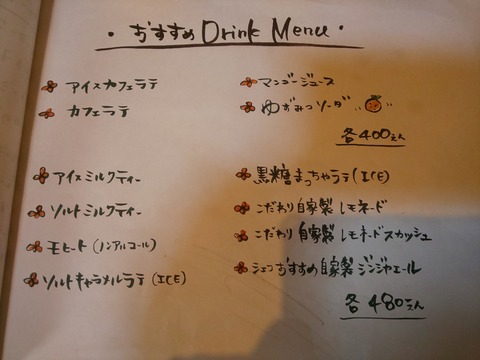 ・おすすめ Drink Menu・
アイスカフェラテ
カフェラテ
マンゴージュース
ゆずみつソーダ
各400えん
アイスミルクティー
ソルトミルクティー
モヒート (ノンアルコール)
ソルトキャラメルラテ (ICE)
黒糖まっちゃラテ (ICE)
こだわり自家製レモネード
こだわり自家製レモネードスカッシュ
シェフおすすめ自家製ジンジャエール
各480えん